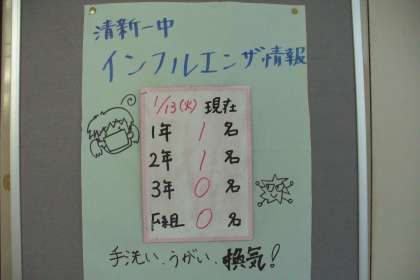 清新一中
インフルエンザ情報
1/13(火) 現在
1年 1 名
2年 1 名
3年 0 名
F組 0 名
手洗い、うがい、換気!